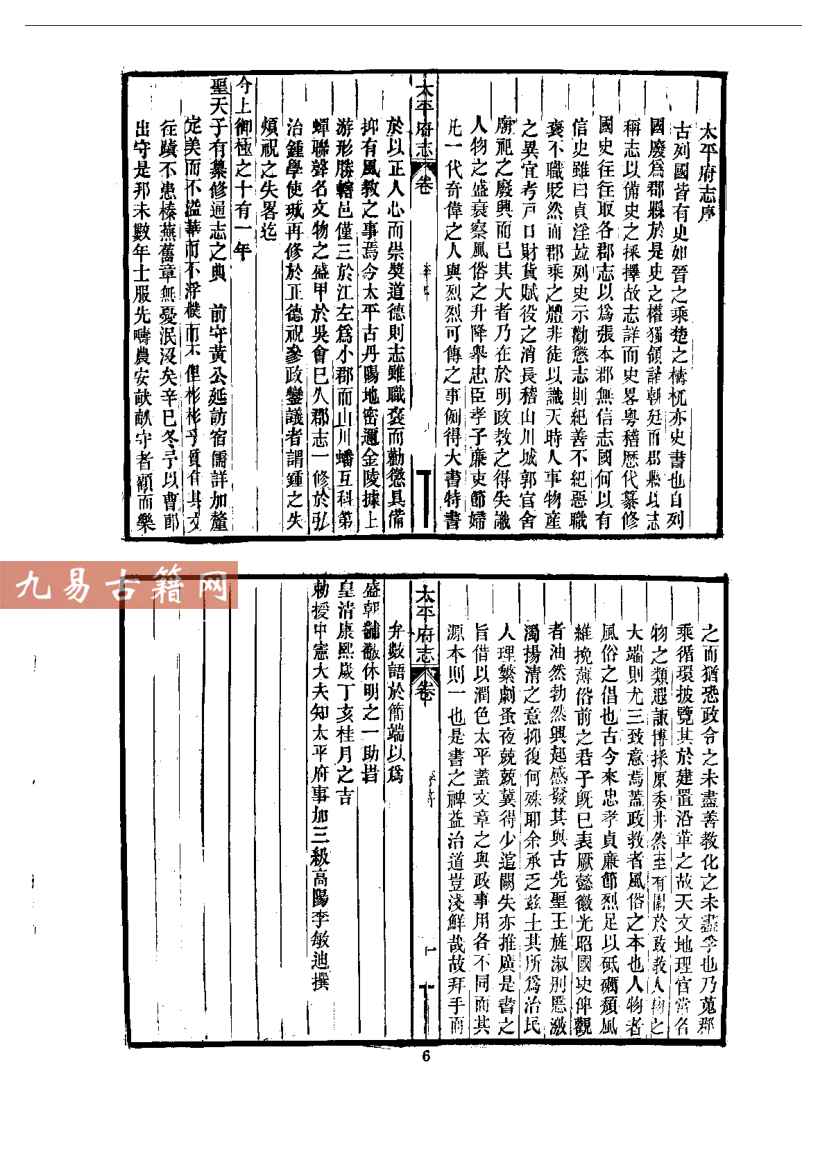 太平府志序
古列國皆有史如晉之乘楚之檮杌亦史書也自列
國廢爲郡縣於是史之權獨領諸朝廷而郡縣以志
稱志以備史之採擇故志詳而史畧粤稽歴代纂修
國史往往取各郡志以爲張本郡無信志國何以有
信史雖曰貞淫竝列史示勸懲志則紀善不紀惡職
褒不職貶然而郡乘之體非徒以識天時人事物産
之異宜考戸口財貨賦役之消長稽山川城郭官舍
廟祀之廢興而已其大者乃在於明政敎之得失識
人物之盛衰察風俗之升降舉忠臣孝子廉吏節婦
凡一代奇偉之人與烈烈可傳之事例得大書特書
太平府志
卷
於以正人心而崇奬道德則志雖職褒而勸懲具備
抑有風敎之事焉今太平古丹陽地密邇金陵據上
游形勝轄邑僅三於江左爲小郡而山川蟠互科第
蟬聯聲名文物之盛甲於吳會已久郡志一修於弘
治鍾學使珹再修於正德祝參政鑾議者謂鍾之失
煩祝之失畧迄
今上御極之十有一年
聖天子有纂修通志之典 前守黃公延訪宿儒詳加釐
定美而不溢華而不浮樸而不俚彬彬乎質有其文
往蹟不患榛蕪舊章無憂泯沒矣辛巳冬予以曹郎
出守是邦未數年士服先疇農安畎畝守者顧而樂
之而猶恐政令之未盡善敎化之未盡孚也乃蒐郡
乘循環披覽其於建置沿革之故天文地理官常名
物之類遐諏博採原委井然至有關於政敎人物之
大端則尤三致意焉蓋政敎者風俗之本也人物者
風俗之倡也古今來忠孝貞廉節烈足以砥礪頽風
維挽薄俗前之君子旣已表厥懿徽光昭國史俾觀
者油然勃然興起感發其與古先聖王旌淑別慝激
濁揚清之意抑復何殊耶余承乏兹土其所爲治民
人理繁劇蚤夜兢兢冀得少逭闕失亦推廣是書之
旨借以潤色太平蓋文章之與政事用各不同而其
源本則一也是書之裨益治道豈淺鮮哉故拜手而
太平府志
卷
弁數語於簡端以爲
盛朝黼黻休明之一助旹
皇清康熙歲丁亥桂月之吉
勅授中憲大夫知太平府事加三級高陽李敏迪撰
九易古籍网
6